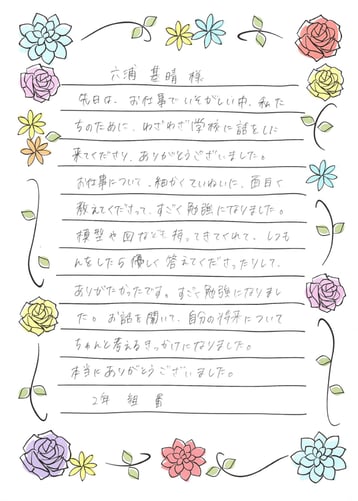 六浦 基晴 様
先日は、お仕事でいそがしい中、私た
ちのために、わざわざ学校に話をしに
来てくださり、ありがとうございました。
お仕事について、細かくていねいに、面白く
教えてくださって、すごく勉強になりました。
模型や図なども持ってきてくれて、しつも
んをしたら優しく答えてくださったりして、
ありがたかったです。すごく勉強になりまし
た。お話を聞いて、自分の将来について
ちゃんと考えるきっかけになりました。
本当にありがとうございました。
2年 組 番